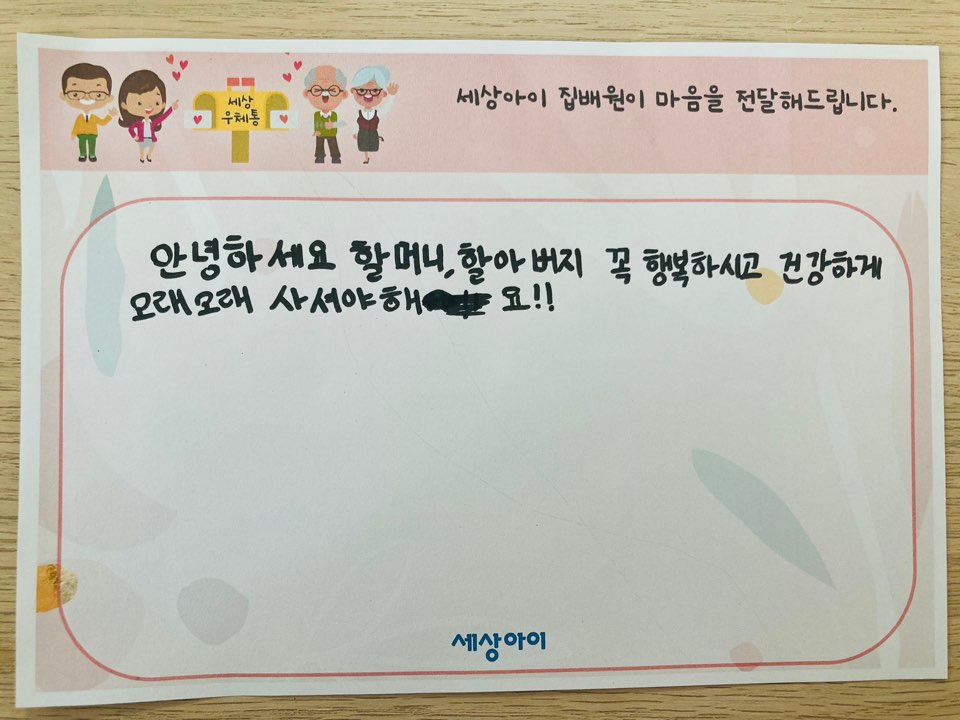 세상
우체통
세상아이 집배원이 마음을 전달해드립니다.
안녕하세요 할머니, 할아버지 꼭 행복하시고 건강하게
오래오래 사셔야해 요!!
세상아이